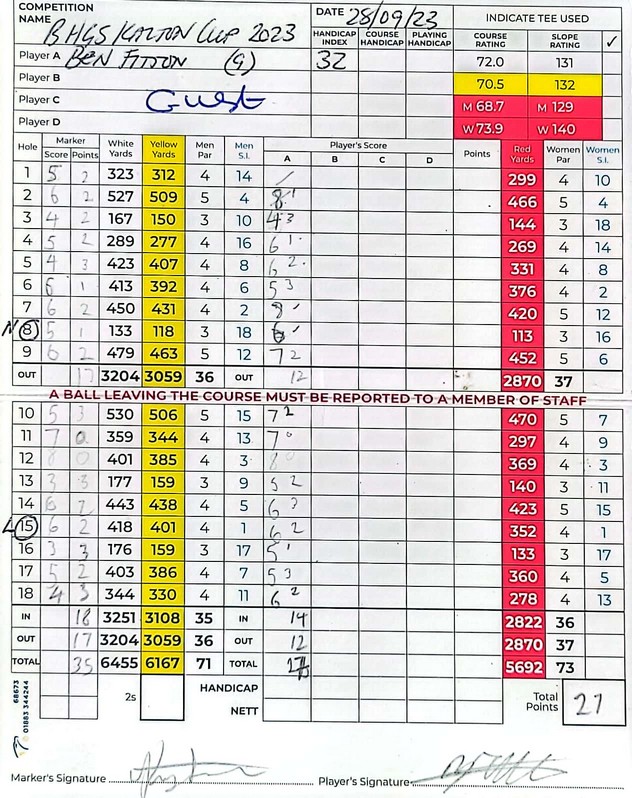 COMPETITION NAME BHGS KALTON CUP 2023 DATE 28/09/23 INDICATE TEE USED
HANDICAP INDEX COURSE HANDICAP PLAYING HANDICAP COURSE RATING SLOPE RATING ✓
Player A BEN FITTON (G) 32 72.0 131
Player B 70.5 132
Player C Guest M 68.7 M 129
Player D W 73.9 W 140
Hole Marker Score Points White Yards Yellow Yards Men Par Men S.I. Player's Score A B C D Points Red Yards Women Par Women S.I.
1 5 2 323 312 4 14 / 299 4 10
2 6 2 527 509 5 4 8 1 466 5 4
3 4 2 167 150 3 10 4 3 144 3 18
4 5 2 289 277 4 16 6 1 269 4 14
5 4 3 423 407 4 8 6 2 331 4 8
6 6 1 413 392 4 6 5 3 376 4 2
7 6 2 450 431 4 2 8 420 5 12
N 8 5 1 133 118 3 18 6 113 3 16
9 6 2 479 463 5 12 7 2 452 5 6
OUT 17 3204 3059 36 OUT 12 2870 37
A BALL LEAVING THE COURSE MUST BE REPORTED TO A MEMBER OF STAFF
10 5 3 530 506 5 15 7 2 470 5 7
11 7 0 359 344 4 13 7 0 297 4 9
12 8 0 401 385 4 3 8 0 369 4 3
13 3 3 177 159 3 9 5 2 140 3 11
14 6 2 443 438 4 5 6 423 5 15
L 15 6 2 418 401 4 1 6 2 352 4 1
16 3 3 176 159 3 17 5 1 133 3 17
17 5 2 403 386 4 7 5 3 360 4 5
18 4 3 344 330 4 11 6 2 278 4 13
IN 18 3251 3108 35 IN 14 2822 36
OUT 17 3204 3059 36 OUT 12 2870 37
TOTAL 35 6455 6167 71 TOTAL 5692 73
2s HANDICAP Total Points 27
NETT
68673
01883 344244
Marker's Signature Player's Signature